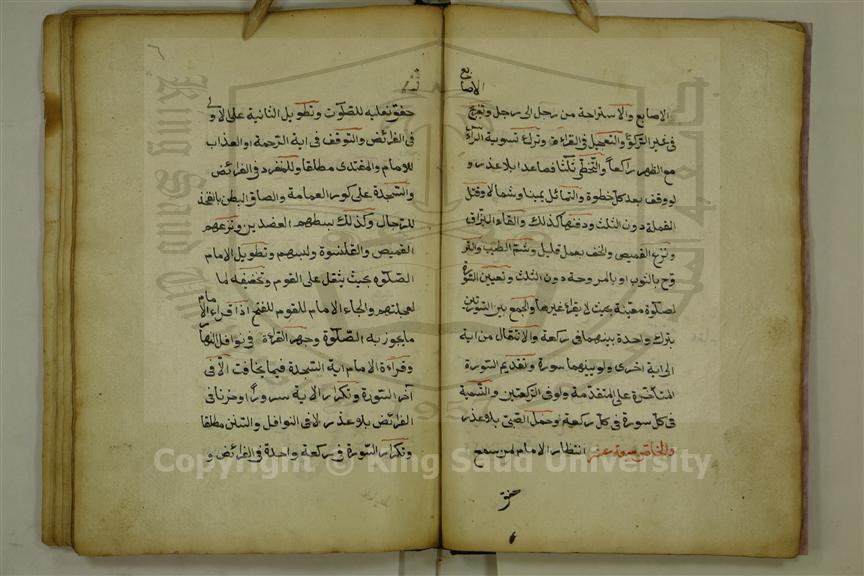 الاصابع
الاصابع والاستراحة من رجل الى رجل وتفرج
فى غير التركوع والتعجيل فى القراءة وترك تسوية الرأس
مع الظهر راكعا والتخطى ثلثا فصاعدا بلا عذر و
لو وقف بعد كل خطوة والتمائل يمينا وشمالا وقتل
القملة دون الثلث ودفنها كذلك والقاء البزاق
ونزع القميص والخف بعمل قليل وشم الطيب والتر
وح بالثوب او بالمروحة دون الثلث وتعيين السورة
لصلوة معينة بحيث لا يقراء غيرها والجمع بين السورتين
بترك واحدة بينهما فى ركعة والانتقال من اية
الى اية اخرى ولو بينهما سورة وتقديم السورة
المتأخرة على المتقدمة ولو فى الركعتين والتسمية
فى كل سورة فى كل ركعة وحمل الصبى بلا عذر
والخاص سبعة عشر انتظار الامام لمن سمع
خفق
خفق نعليه للصلوت وتطويل الثانية على الاولى
فى الفرائض والتوقف فى اية الرحمة او العذاب
للامام والمقتدى مطلقا وللمنفرد فى الفرائض
والسجدة على كور العمامة والصاق البطن بالفخذ
للرجال وكذلك بسطهم العضدين ونزعهم
القميص والقلنسوة ولبسهم وتطويل الامام
الصلوة بحيث يثقل على القوم وتخفيفه لما
لعجلتهم والجاء الامام للقوم للفتح اذا قراء الامام
ما يجوز به الصلوة وجهر القراءة فى نوافل النهار
وقراءة الامام اية السجدة فيما يخافت الا فى
آخر السورة وتكرار الاية سرورا او حزنا فى
الفرائض بلا عذر لا فى النوافل والسنن مطلقا
وتكرار السورة فى ركعة واحدة فى الفرائض و
Copyright © King Saud University